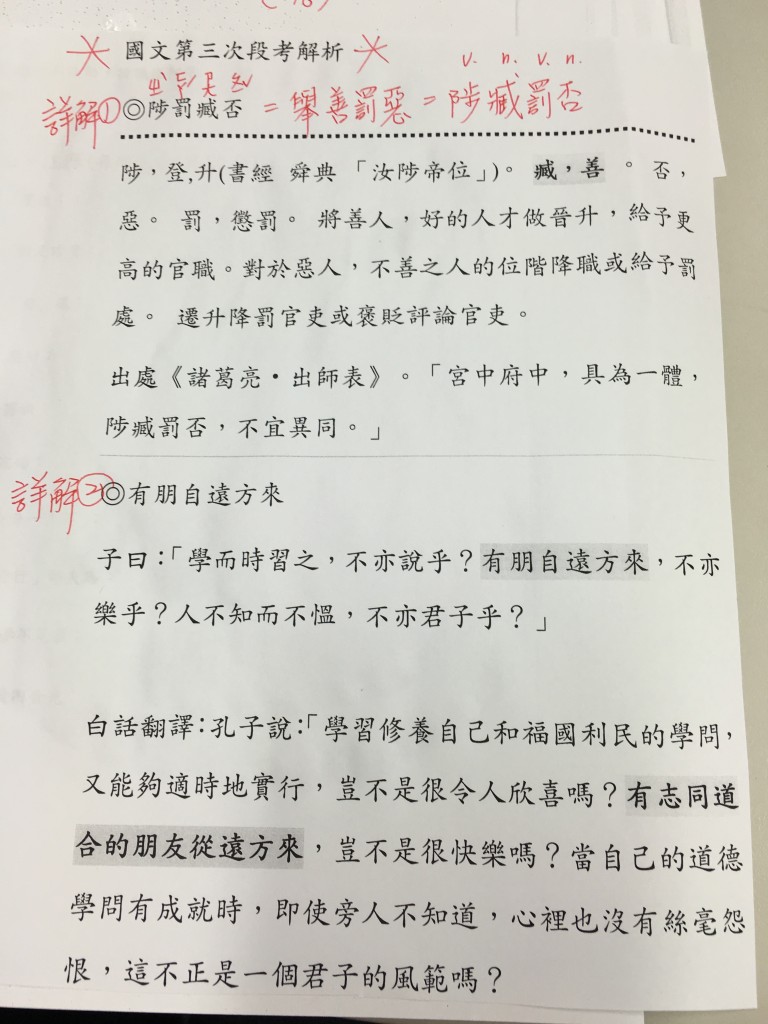 國文第三次段考解析
v. n. v. n.
詳解① ◎陟罰臧否 = 舉善罰惡 = 陟臧罰否
陟，登,升(書經 舜典 「汝陟帝位」)。 臧，善 。 否，
惡。 罰，懲罰。 將善人，好的人才做晉升，給予更
高的官職。對於惡人，不善之人的位階降職或給予罰
處。 遷升降罰官吏或褒貶評論官吏。
出處《諸葛亮・出師表》。「宮中府中，具為一體，
陟臧罰否，不宜異同。」
詳解② ◎有朋自遠方來
子曰：「學而時習之，不亦說乎？有朋自遠方來，不亦
樂乎？人不知而不慍，不亦君子乎？」
白話翻譯：孔子說：「學習修養自己和福國利民的學問，
又能夠適時地實行，豈不是很令人欣喜嗎？有志同道
合的朋友從遠方來，豈不是很快樂嗎？當自己的道德
學問有成就時，即使旁人不知道，心裡也沒有絲毫怨
恨，這不正是一個君子的風範嗎？